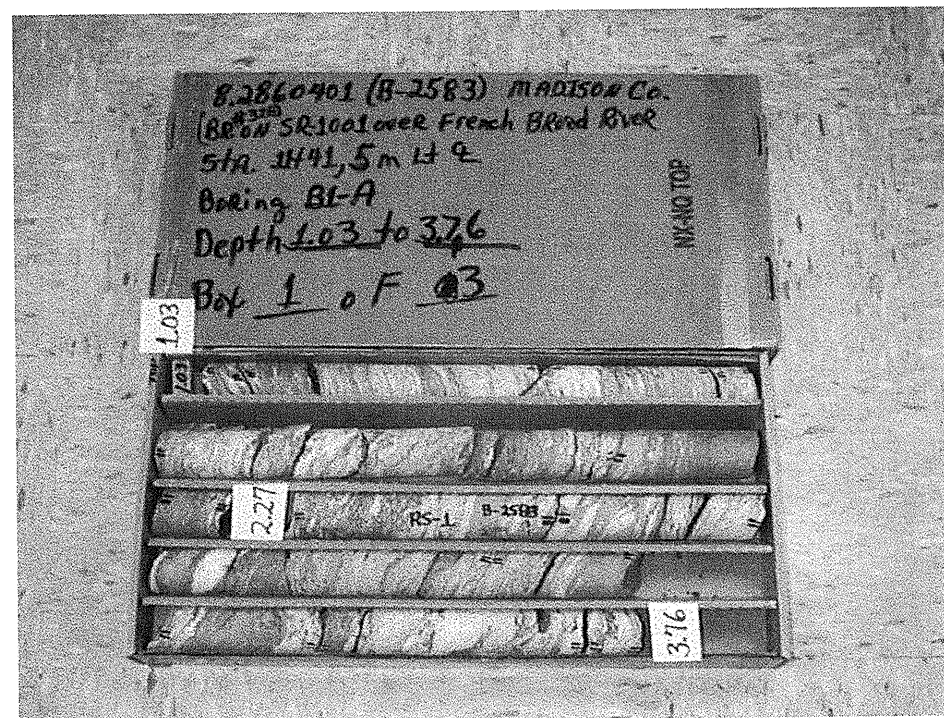 8.2860401 (B-2583) MADISON Co.
(BR ON SR-1001 over French BRoad River
Sta. 1+41, 5m Lt ℄
Boring B1-A
Depth 1.03 to 3.76
Box 1 oF 3
NX-NQ TOP
1.03
1.03
2.27
RS-1 B-2583
3.76